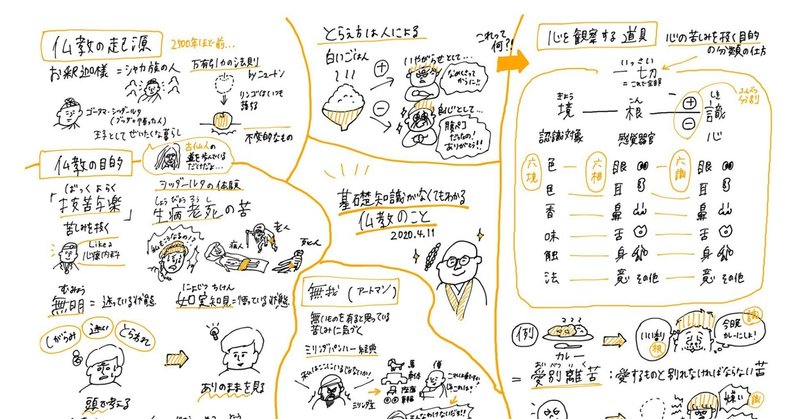 仏教の起源
2500年ほど前…
お釈迦様=シャカ族の人
万有引力の法則
byニュートン
リンゴはいつも
落ちる
ゴータマ・シッダールタ
王子としてぜいたくな暮らし
不変的なもの
古仏人の
仏教の目的
ばっくよらく
「抜苦与楽」
苦しみを抜く
Like a
心療内科
シッダールタの体験
しょうびょうろうし
生病老死の苦
病人
老人
死人
むみょう
無明=迷っている状態
にょじつちけん
如実知見=悟っている状態
しがらみ
迷い
とらわれ
頭で考える
ありのまま見る
とらえ方は人による
白いごはん
いやがらせとして…
良心として…
腹ペコ
だったの!
ありがとう!!
これって
何?!
基礎知識がなくてもわかる
仏教のこと
2020.4.11
無我(アートマン)
無いものを有ると思っている
苦しみに気づく
ミリンダパンハー経典
私はここにいるじゃないか!
ミリンダ王
僧
心を観察する道具
心の苦しみを抜く目的
の分類の仕方
いっさい
一切
=これで全部
きょう
境
こん
根
しき
識
ふんべつ
分別
認識対象
感覚器官
心
六境
六根
六識
色
眼
眼
耳
耳
香
鼻
鼻
味
舌
舌
触
身
身
法
意
その他
意
その他
例
カレー
いい香り
根
今晩
カレーにしよ!
識
あいべつりく
=愛別離苦:愛するものと別れなければならない苦
嫌い